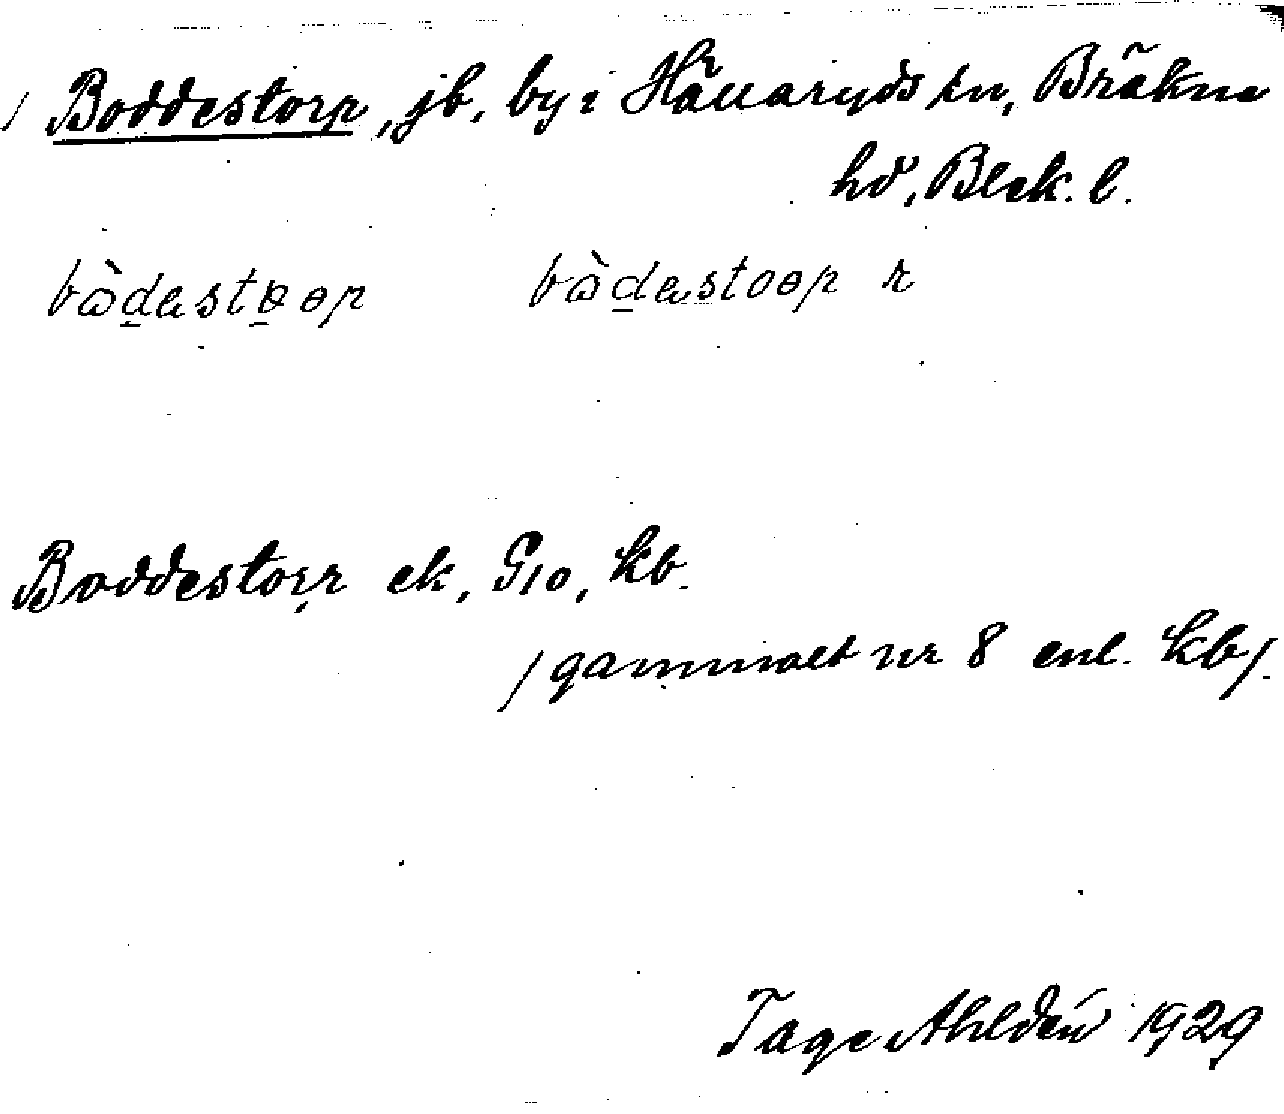 / Boddestorp, jb, by i Hällaryds sn, Bräkne
hd, Blek. l.
bὼdastɐɵp bὼdastoɵp r
Boddestorp ek, G10, kb.
/gammalt nr 8 enl. kb/.
Tage Ahldén 1929